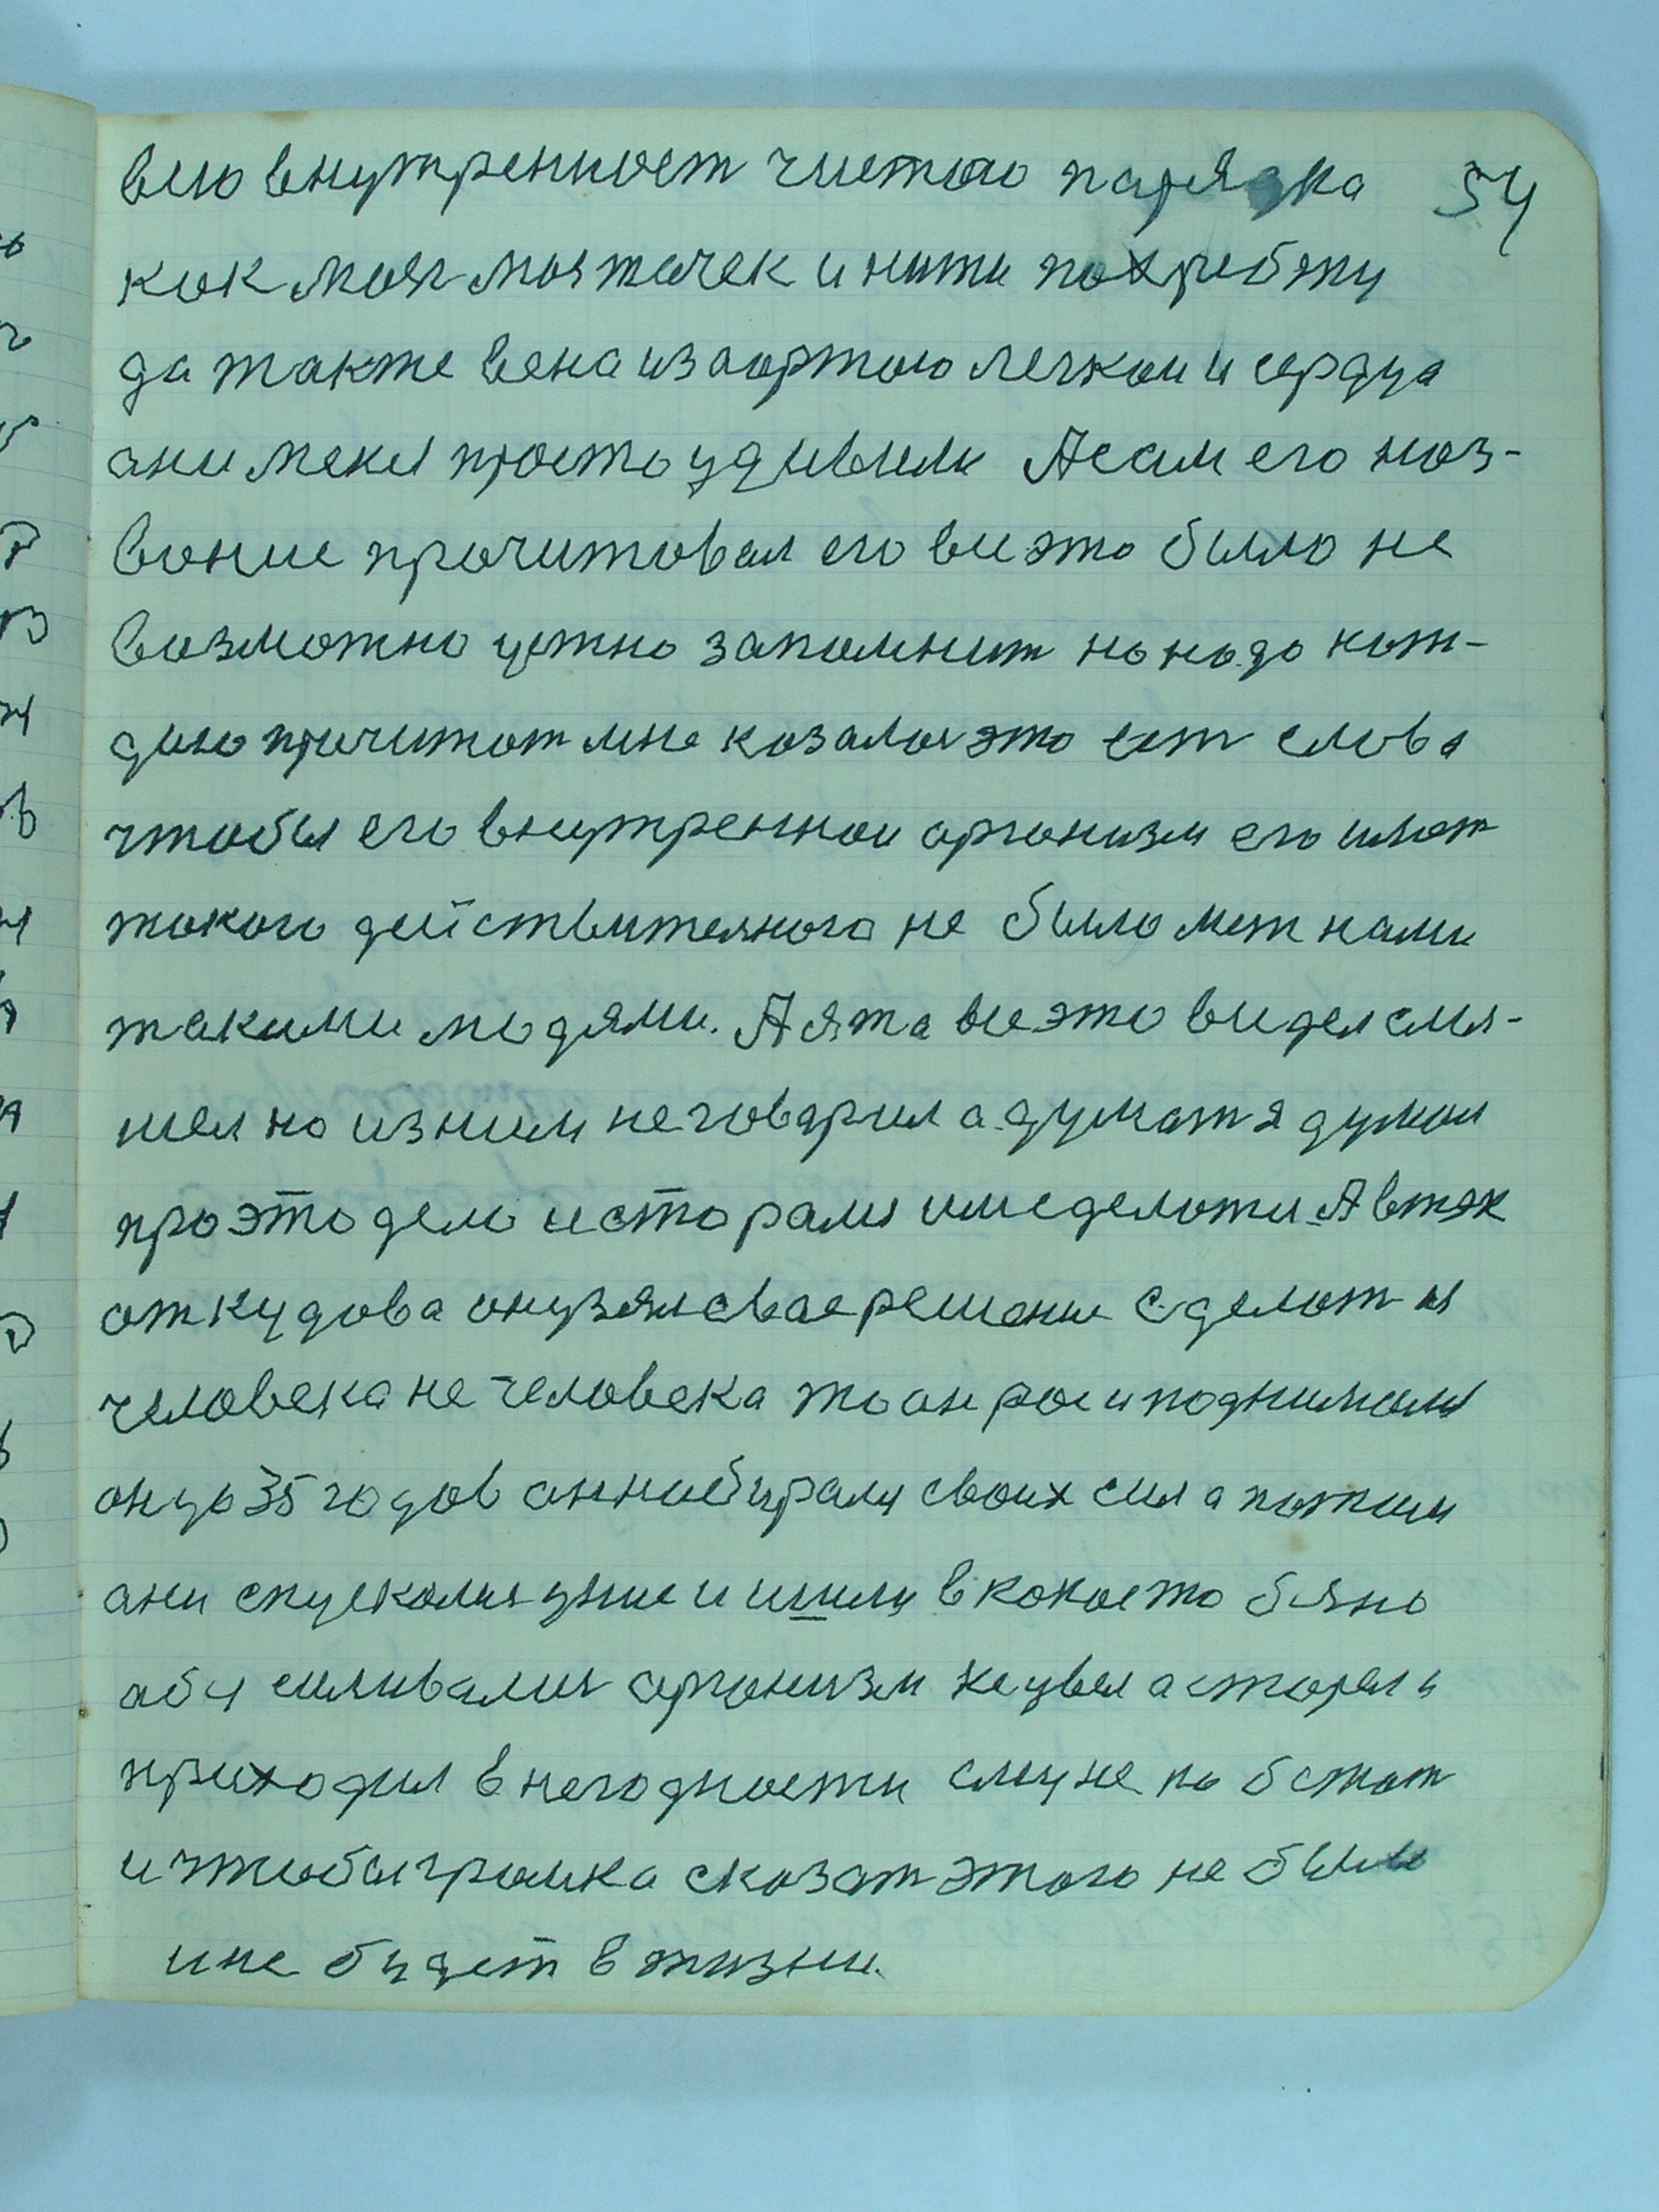 всю внутренност чистою парядка 54
как моя мозтачек и нити похребту
да также вена из аортою легкои и сердца
ани меня просто удивили А сам его наз-
вание прочитовал его все это было не
возможно устно запомнит но надо каж-
дую прочитат мне казалос это ест слова
чтобы его внутреннои организм его имет
такого действителного не было меж нами
такими людями. А я та все это видел слы-
шал но из ним не говарил а думат я думал
про это дело и старался им еделожи А втак
откудова он узял свае решение сделат ся
человека не человека то он рос и поднимался
он до 35 годов он набирался своих сил а патом
ани спускалися уние и шили в кокоето бяно
абусиливался организм не цвел а старел и
приходил в негодности ему не побстат
и чтобы громка сказат этого не было
и не будет в жизни.